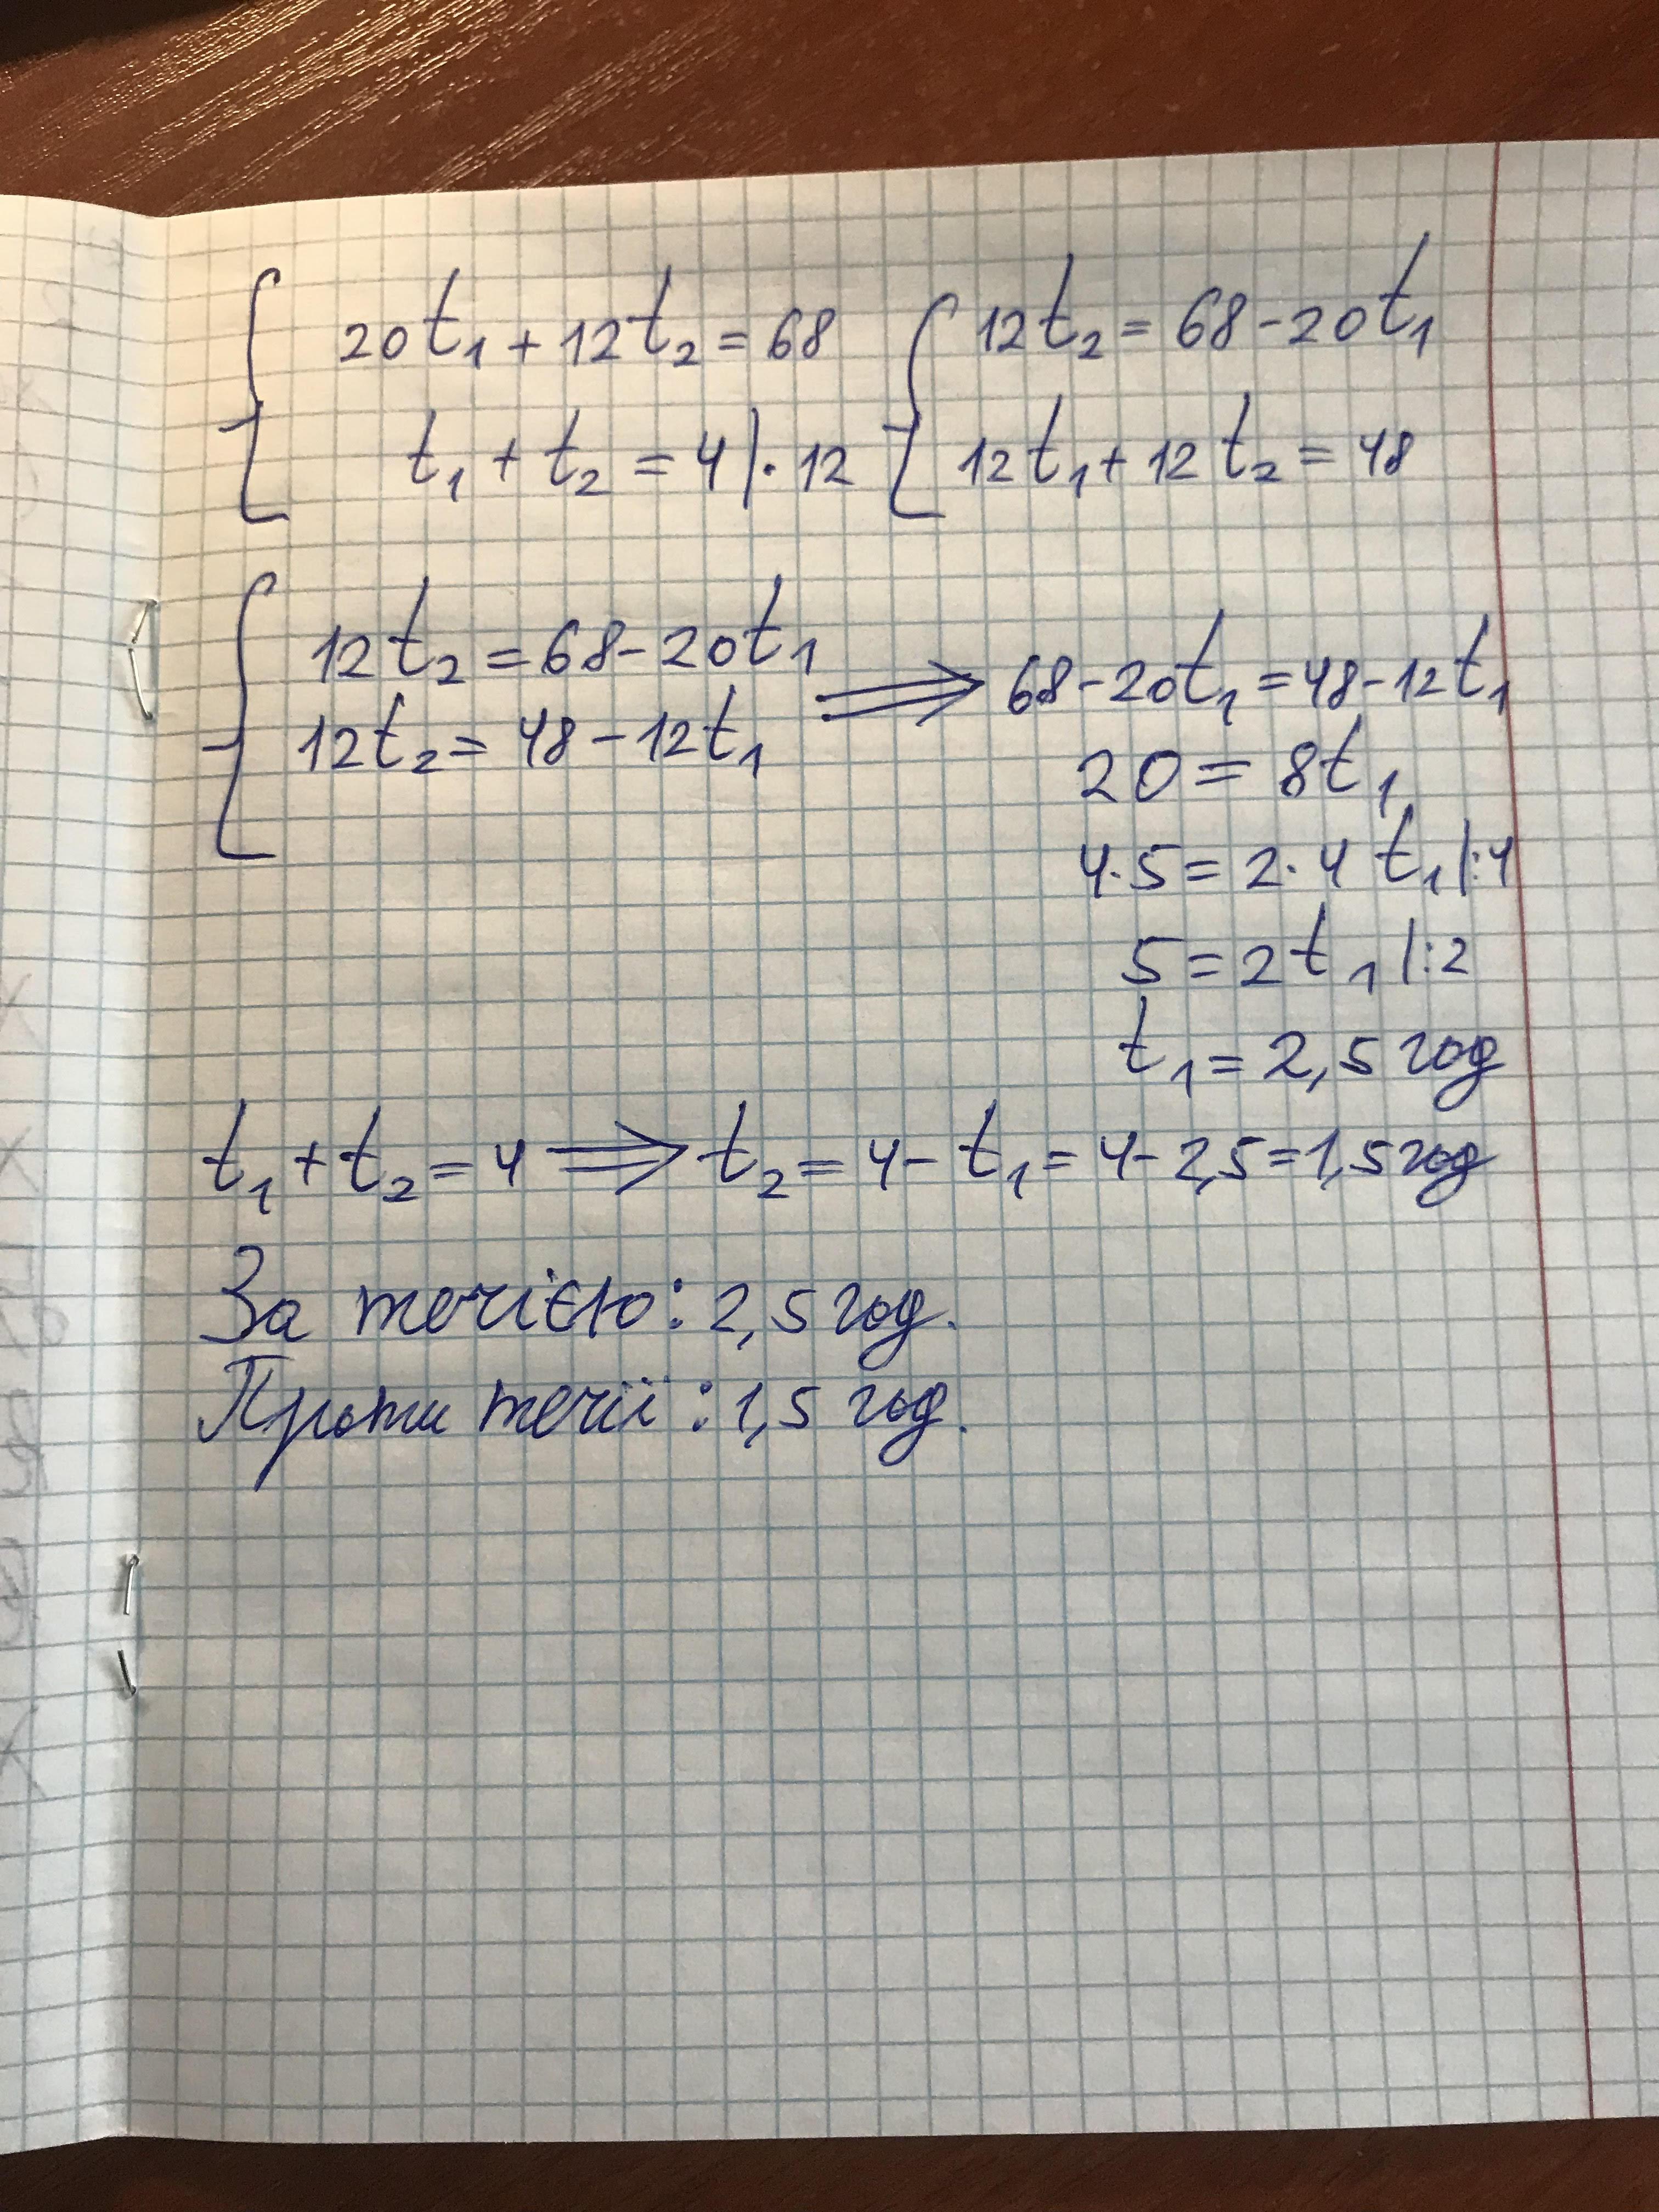 20t₁ + 12t₂ = 68
t₁ + t₂ = 4 |· 12
12t₂ = 68 - 20t₁
12t₁ + 12t₂ = 48
12t₂ = 68 - 20t₁
12t₂ = 48 - 12t₁
⟹ 68 - 20t₁ = 48 - 12t₁
20 = 8t₁
4·5 = 2·4 t₁ |:4
5 = 2t₁ |:2
t₁ = 2,5 год
t₁ + t₂ = 4 ⟹ t₂ = 4 - t₁ = 4 - 2,5 = 1,5 год
За течією: 2,5 год.
Проти течії: 1,5 год.